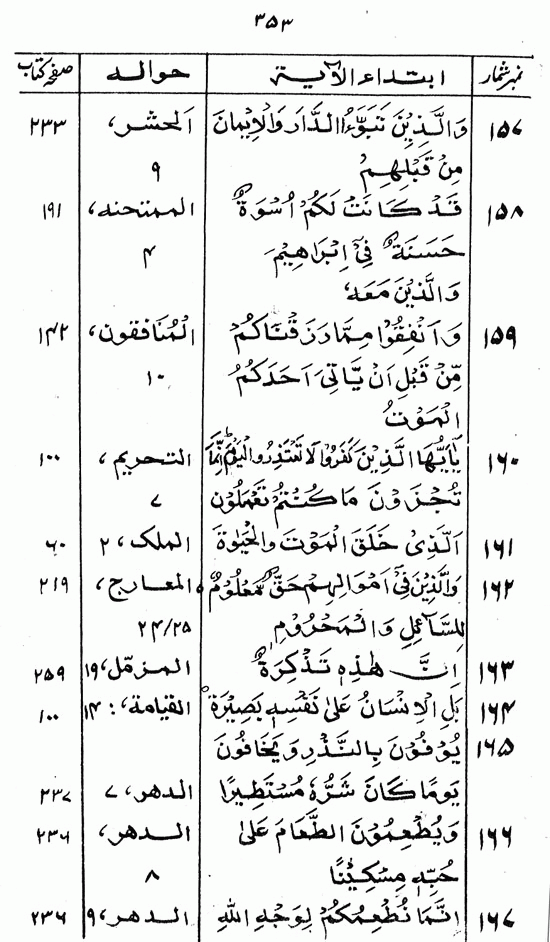 ۳۵۳
نمبر شمار ابتداء الآیۃ حوالہ صفحہ کتاب
۱۵۷ وَالَّذِيْنَ تَبَوَّءُ الدَّارَ وَالْاِيْمَانَ الحشر، ۲۳۳
مِنْ قَبْلِهِمْ ۹
۱۵۸ قَدْ كَانَتْ لَكُمْ اُسْوَةٌ الممتحنہ، ۱۹۱
حَسَنَةٌ فِيْٓ اِبْرَاهِيْمَ ۴
وَالَّذِيْنَ مَعَهٗ
۱۵۹ وَاَنْفِقُوْا مِمَّا رَزَقْنَاكُمْ المُنَافقون، ۱۴۲
مِّنْ قَبْلِ اَنْ يَّاْتِيَ اَحَدَكُمُ ۱۰
الْمَوْتُ
۱۶۰ يٰٓاَيُّهَا الَّذِيْنَ كَفَرُوْا لَا تَعْتَذِرُوا الْيَوْمَ اِنَّمَا التحریم، ۱۰۰
تُجْزَوْنَ مَا كُنْتُمْ تَعْمَلُوْنَ ۷
۱۶۱ اَلَّذِيْ خَلَقَ الْمَوْتَ وَالْحَيٰوةَ الملک، ۲ ۶۰
۱۶۲ وَالَّذِيْنَ فِيْٓ اَمْوَالِهِمْ حَقٌّ مَّعْلُوْمٌ المعارج، ۲۱۹
لِلسَّآئِلِ وَالْمَحْرُوْمِ ۲۴/۲۵
۱۶۳ اِنَّ هٰذِهٖ تَذْكِرَةٌ المزمّل، ۱۹ ۲۵۹
۱۶۴ بَلِ الْاِنْسَانُ عَلٰى نَفْسِهٖ بَصِيْرَةٌ القیامۃ،: ۱۴ ۱۰۰
۱۶۵ يُوْفُوْنَ بِالنَّذْرِ وَيَخَافُوْنَ
يَوْمًا كَانَ شَرُّهٗ مُسْتَطِيْرًا الدھر، ۷ ۲۳۷
۱۶۶ وَيُطْعِمُوْنَ الطَّعَامَ عَلٰى الدھر، ۲۳۶
حُبِّهٖ مِسْكِيْنًا ۸
۱۶۷ اِنَّمَا نُطْعِمُكُمْ لِوَجْهِ اللّٰهِ الدھر، ۹ ۲۳۶